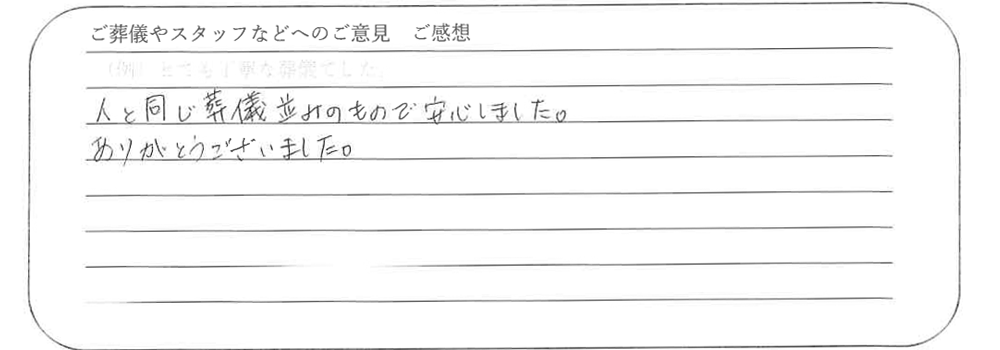 ご葬儀やスタッフなどへのご意見　ご感想
（例）とても丁寧な葬儀でした。
人と同じ葬儀並みのもので安心しました。
ありがとうございました。